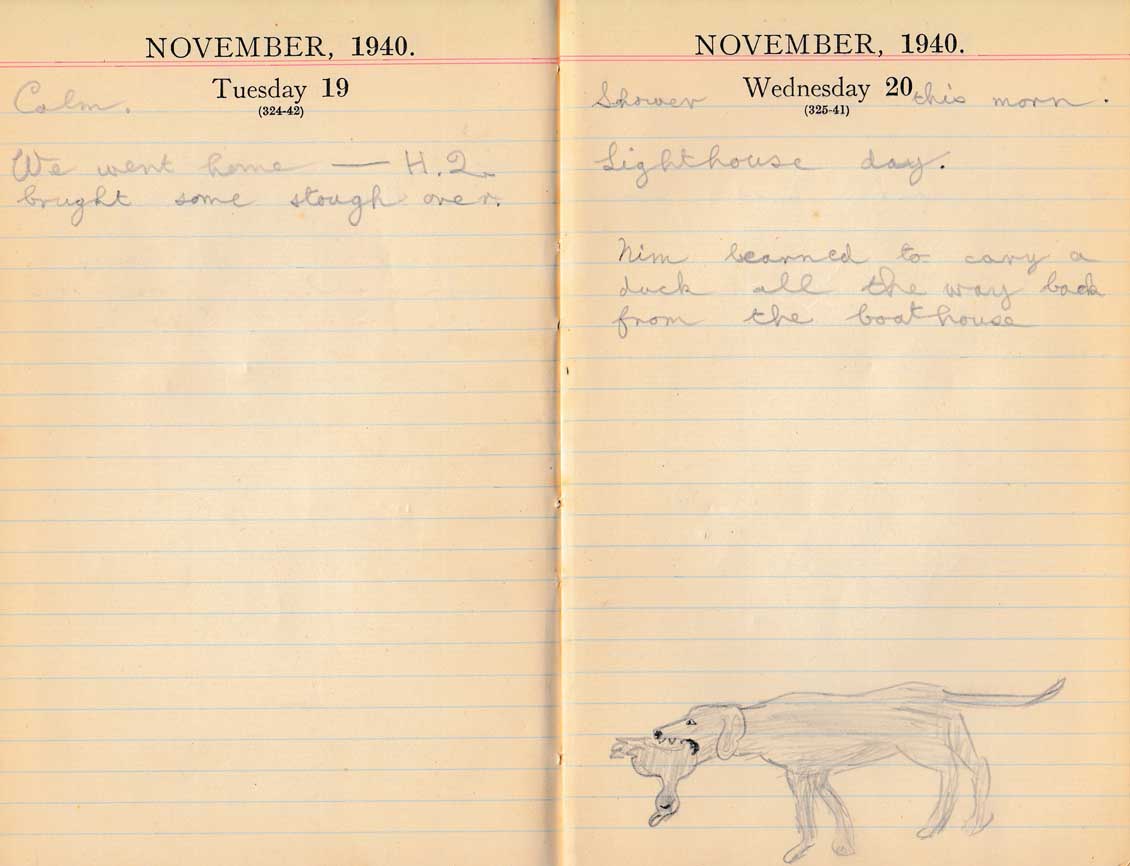 NOVEMBER, 1940.
Tuesday 19
(324-42)
Calm.
We went home — H.Q.
brught some stough over.
NOVEMBER, 1940.
Wednesday 20
(325-41)
Shower this morn.
Lighthouse day.
Nim learned to cary a
duck all the way back
from the boathouse